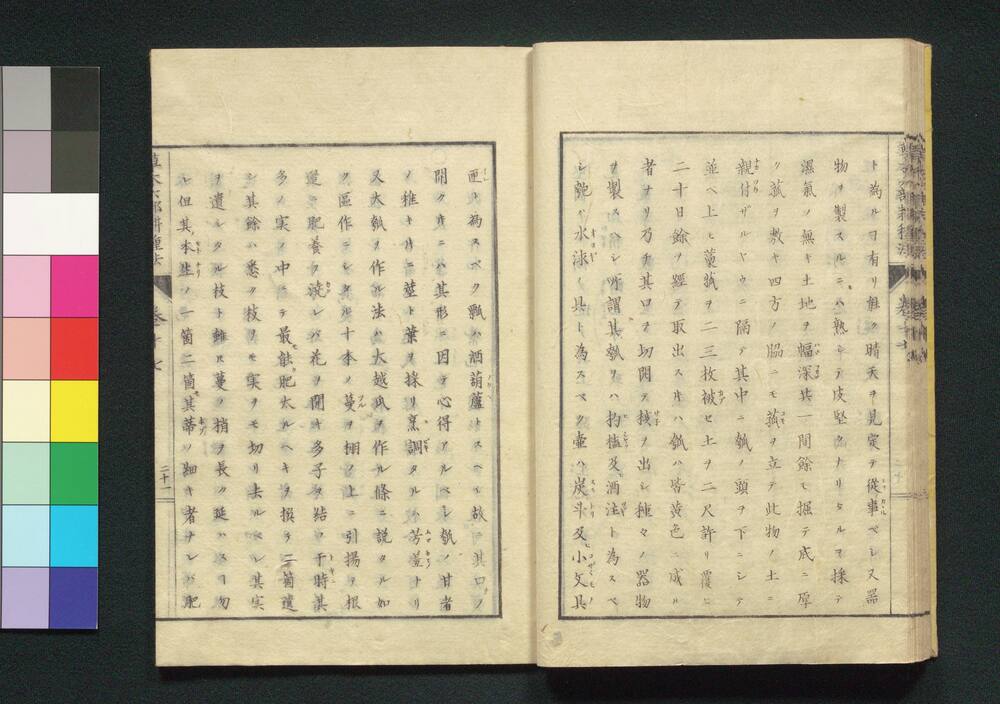 ト為ルヿ有リ能ク晴天ヲ見定テ從事ベシ又器
物ヲ製スルニハ熟シテ皮堅クナリタルヲ採テ
濕氣ノ無キ土地ヲ幅深共一間餘モ掘テ底ニ厚
ク菰ヲ敷キ四方ノ脇ニモ菰ヲ立テ此物ノ土ニ
親付ザルヤウニ隔テ其中ニ瓠ノ頭ヲ下ニシテ
並ベ上モ菰ヲ二三枚被セ土ヲ二尺許リ覆ヒ
二十日餘ヲ經テ取出スキハ瓠ハ皆黄色ニ成ル
者ナリ乃チ其口ヲ切開キ核ヲ出シ種々ノ器物
ヲ製スベシ所謂其瓠ハ杓榼及酒注ト為スベ
シ瓢ハ水泳ノ具ト為スベク壷ハ炭斗及小文具
匣ト為スベク瓢ハ酒葫蘆トスベシ故ニ其口ノ
開ク片ニハ其形ニ因テ心得アルベシ瓠ノ甘者
ノ稚キ片ニ莖ト葉ヲ採リ烹調タルハ芳羹ナリ
又大瓠ヲ作ル法ハ大越瓜ヲ作ル條ニ説タル如
ク區作ニシタル十本ノ蔓ヲ棚ノ上ニ引揚ヲ根
邊ニ肥養ヲ澆レバ花ヲ開キ多子ヲ結ブ干時其
多ノ実ノ中ニテ最能肥太ルベキヲ撰ミ二箇遺
シ其餘ハ悉ク枝ヲモ実ヲモ切リ去ルベシ其実
ヲ遺シタル枝ト雖ヒ蔓ノ梢ヲ長ク延ハスヿ勿
レ但其本ノ一箇二箇其蒂ノ細キ者ナレバ肥
草木六部耕種法
卷十七
二十一